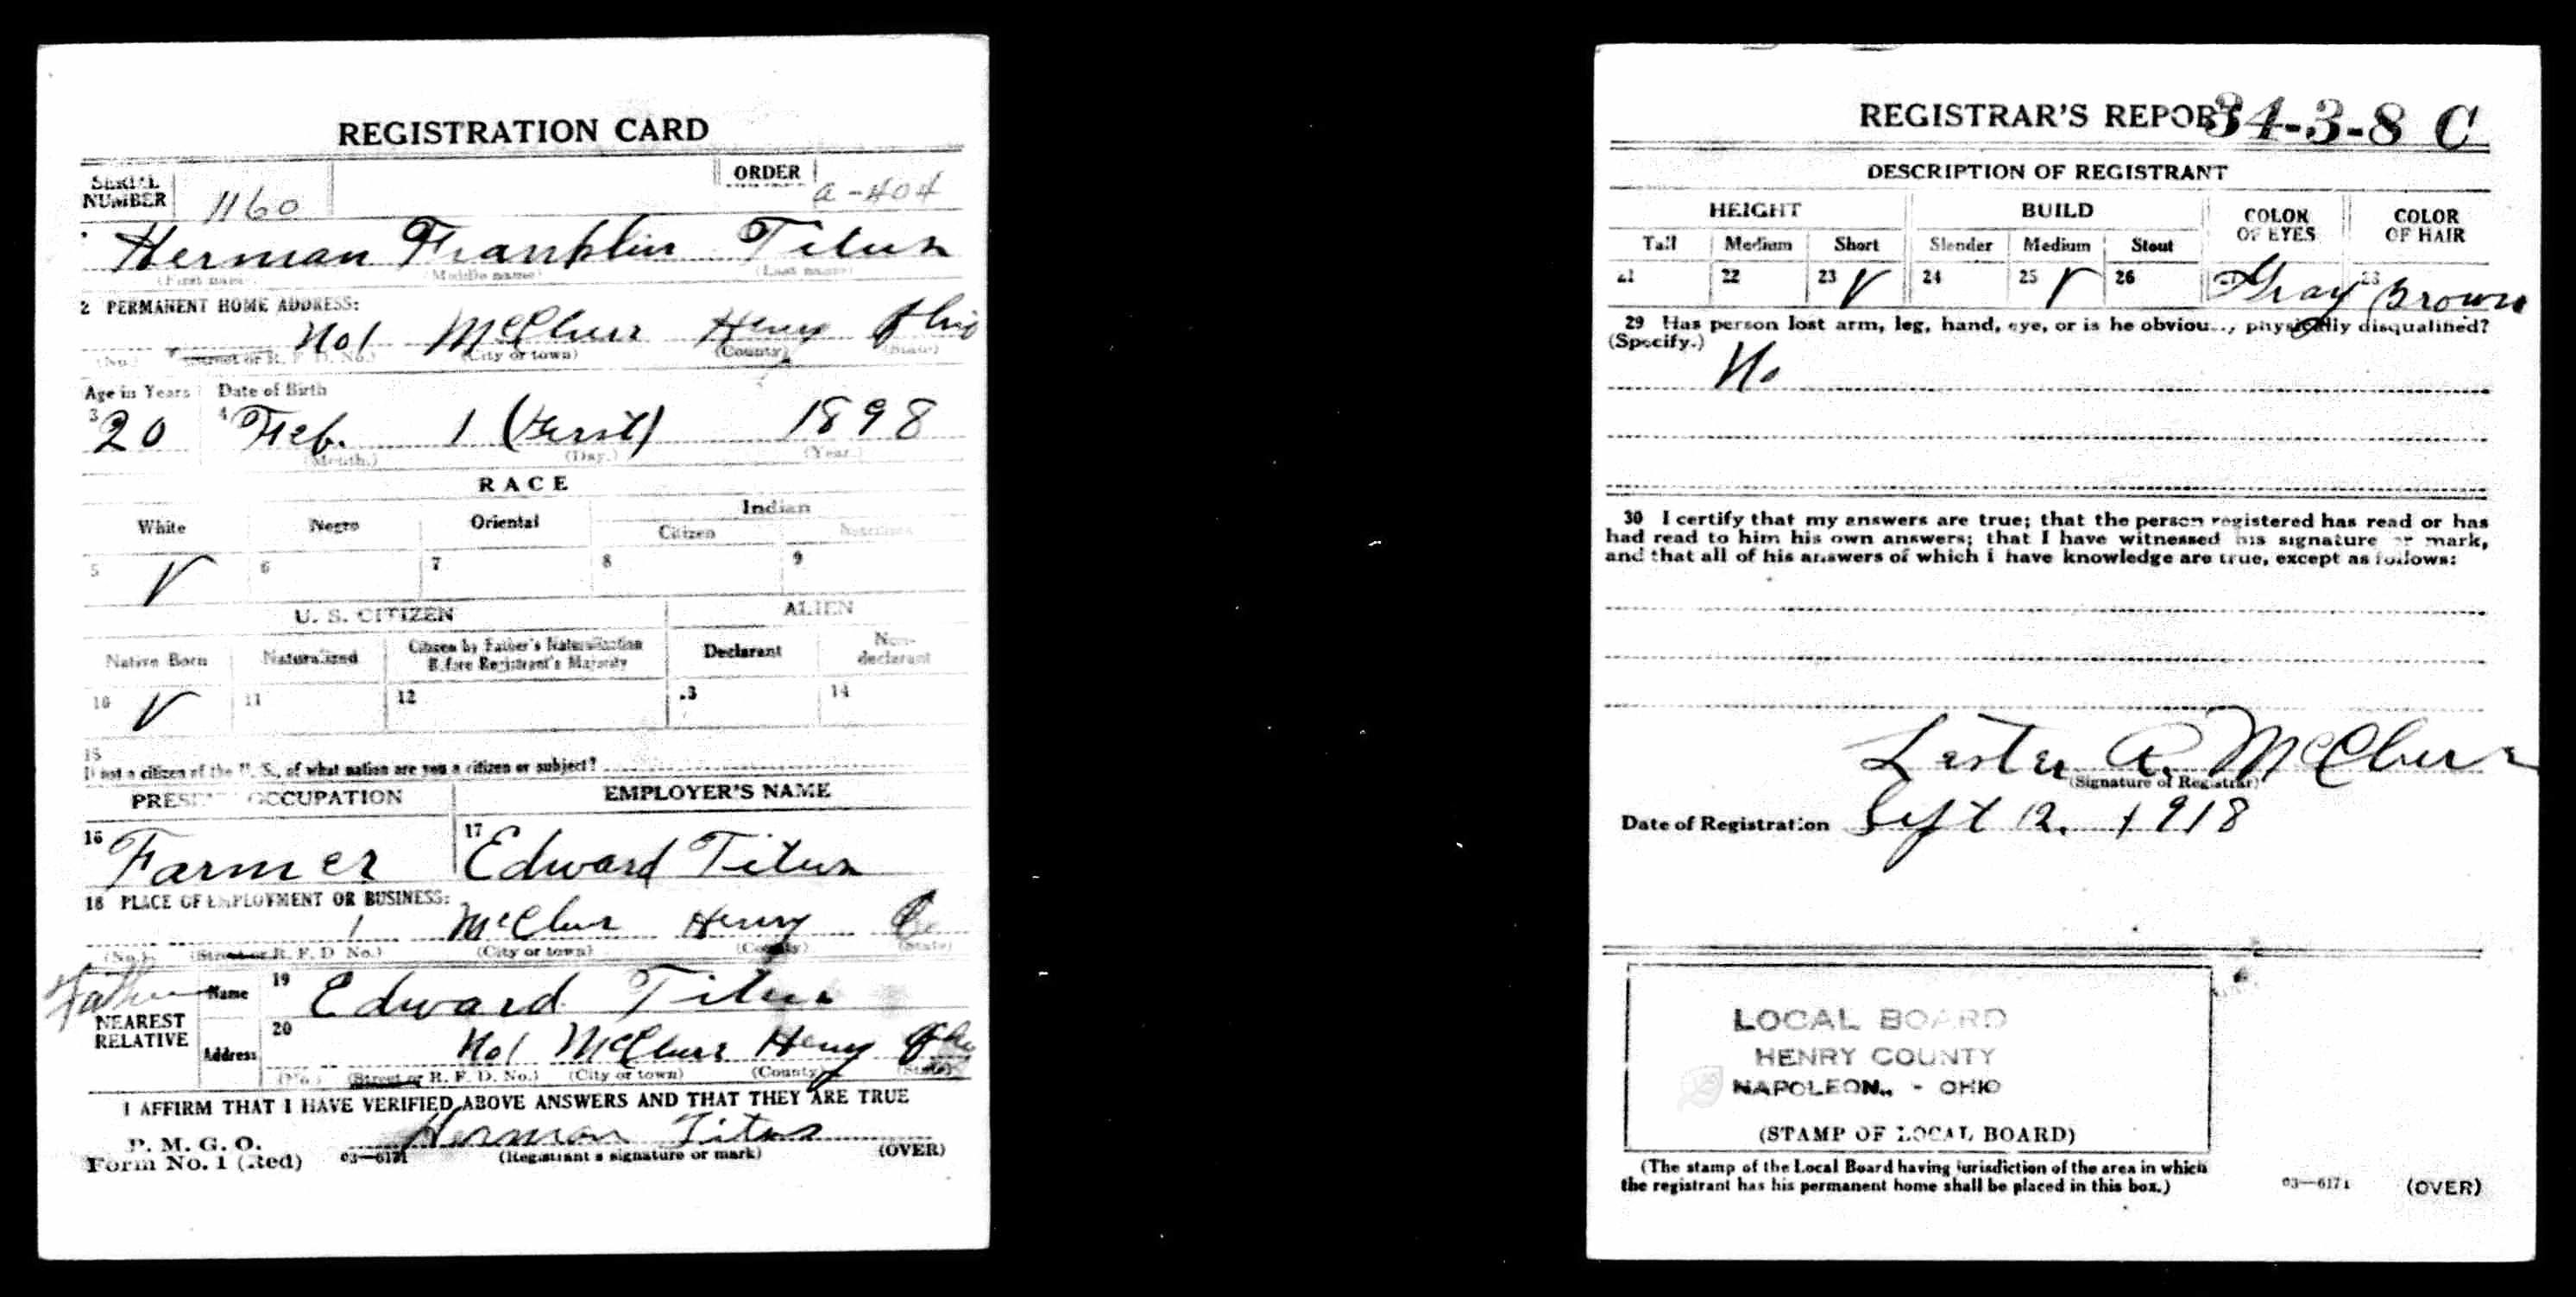 REGISTRATION CARD
SERIAL NUMBER 1160 ORDER a-404
Herman Franklin Titus
(First name) (Middle name) (Last name)
2 PERMANENT HOME ADDRESS:
No1 McClure Henry Ohio
(No.) (Street or R. F. D. No.) (City or town) (County) (State)
Age in Years Date of Birth
3 20 4 Feb. 1 (First) 1898
(Month.) (Day.) (Year.)
RACE
White Negro Oriental Indian
Citizen Noncitizen
5 V 6 7 8 9
U. S. CITIZEN ALIEN
Native Born Naturalized Citizen by Father's Naturalization Before Registrant's Majority Declarant Non-declarant
10 V 11 12 13 14
15
If not a citizen of the U. S., of what nation are you a citizen or subject?
PRESENT OCCUPATION EMPLOYER'S NAME
16 Farmer 17 Edward Titus
18 PLACE OF EMPLOYMENT OR BUSINESS:
1 McClur Henry O
(No.) (Street or R. F. D. No.) (City or town) (County) (State)
Father
NEAREST RELATIVE Name 19 Edward Titus
Address 20 No1 McClure Henry Ohio
(No.) (Street or R. F. D. No.) (City or town) (County) (State)
I AFFIRM THAT I HAVE VERIFIED ABOVE ANSWERS AND THAT THEY ARE TRUE
P. M. G. O.
Form No. 1 (Red) 03—6171 Herman Titus
(Registrant's signature or mark) (OVER)
REGISTRAR'S REPORT 34-3-8 C
DESCRIPTION OF REGISTRANT
HEIGHT BUILD COLOR OF EYES COLOR OF HAIR
Tall Medium Short Slender Medium Stout
21 22 23 V 24 25 V 26 27 Gray 28 Brown
29 Has person lost arm, leg, hand, eye, or is he obviously physically disqualified?
(Specify.) No
30 I certify that my answers are true; that the person registered has read or has
had read to him his own answers; that I have witnessed his signature or mark,
and that all of his answers of which I have knowledge are true, except as follows:
Lester A. McClure
(Signature of Registrar)
Date of Registration Sept 12, 1918
LOCAL BOARD
HENRY COUNTY
NAPOLEON, - OHIO
(STAMP OF LOCAL BOARD)
(The stamp of the Local Board having jurisdiction of the area in which
the registrant has his permanent home shall be placed in this box.)
03—6171 (OVER)